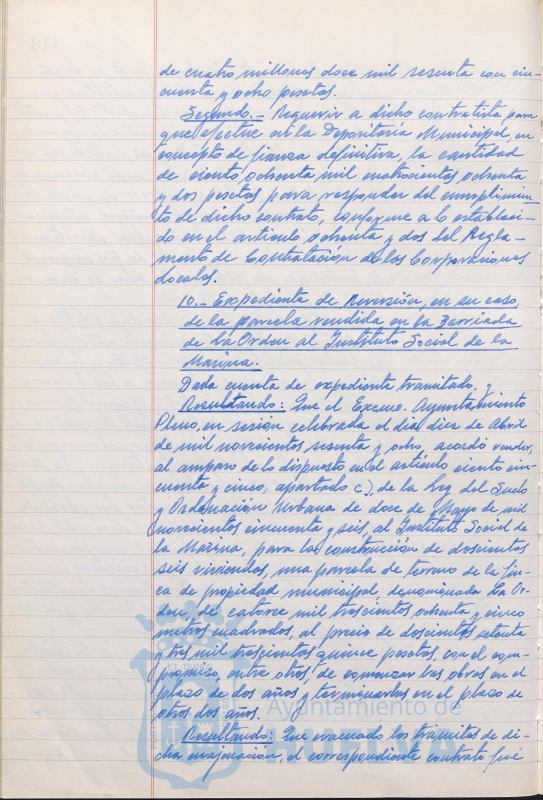 de cuatro millones doce mil sesenta con cin-
cuenta y ocho pesetas.
Segundo.- Requerir a dicho contratista para
que efectue en la Depositaria Municipal, en
concepto de fianza definitiva, la cantidad
de ciento ochenta mil cuatrocientas ochenta
y dos pesetas para responder del cumplimien-
to de dicho contrato, conforme a lo estableci-
do en el articulo ochenta y dos del Regla-
mento de Contratación de las Corporaciones
Locales.
10.- Expediente de Reversión, en su caso,
de la parcela vendida en la Barriada
de La Orden al Instituto Social de la
Marina.
Dada cuenta de expediente tramitado, y
Resultando: Que el Excmo. Ayuntamiento
Pleno, en sesión celebrada el dia diez de Abril
de mil novecientos sesenta y ocho, acordó vender,
al amparo de lo dispuesto en el artículo ciento cin-
cuenta y cinco, apartado c), de la Ley del Suelo
y Ordenación Urbana de doce de Mayo de mil
novecientos cincuenta y seis, al Instituto Social de
la Marina, para la construcción de doscientas
seis viviendas, una parcela de terreno de la fin-
ca de propiedad municipal, denominada La Or-
den, de catorce mil trescientos ochenta y cinco
metros cuadrados, al precio de doscientas setenta
y tres mil trescientas quince pesetas, con el com-
promiso, entre otros, de comenzar las obras en el
plazo de dos años y terminarlas en el plazo de
otros dos años.
Resultando: Que evacuado los trámites de di-
cha enajenación, el correspondiente contrato fué
Ayuntamiento de
HUELVA